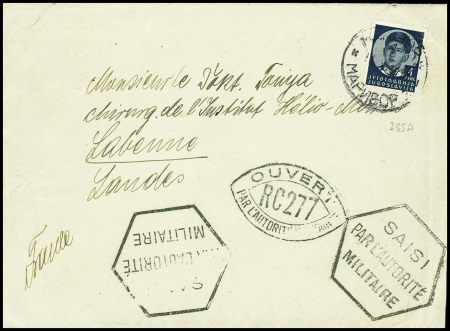 МАРИБОР
4
ЈУГОСЛАВИЈА
JUGOSLAVIJA
285A
Monsieur le
chirurg. de l'Institut Hélio-
Labenne
Landes
France
OUVERT
PAR L'AUTORITÉ
RC277
SAISI
PAR L'AUTORITÉ
MILITAIRE
SAISI
L'AUTORITÉ
MILITAIRE